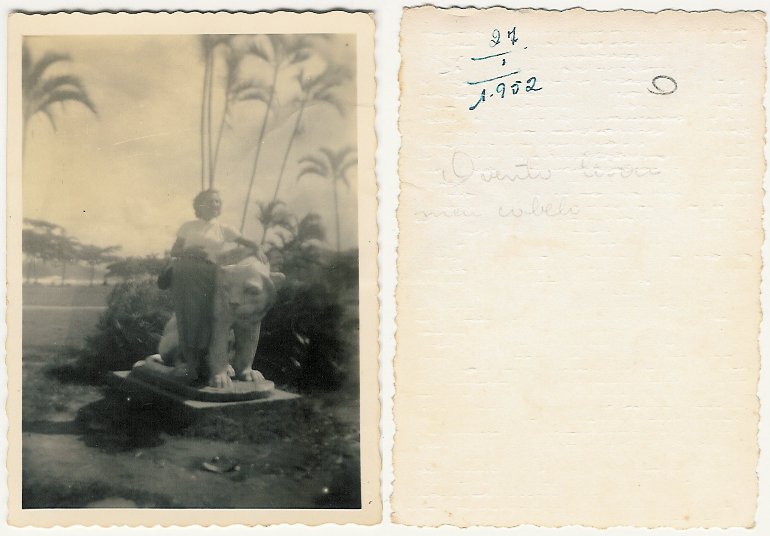 27
1
1.952
O vento levou
meu cabelo